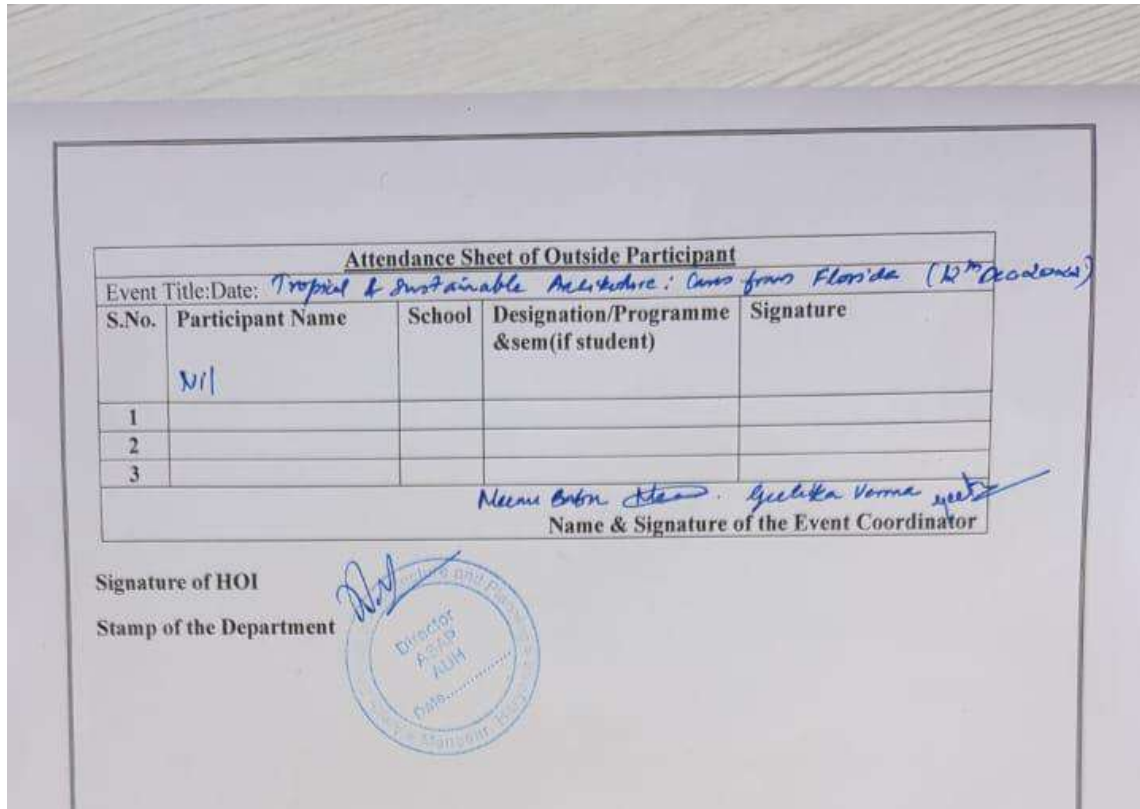 Attendance Sheet of Outside Participant
Event Title:Date: Tropical & Sustainable Architecture: Cases from Florida (12th
S.No. Participant Name School Designation/Programme &sem(if student) Signature
Nil
1
2
3
Meenu Geetika Verma
Name & Signature of the Event Coordinator
Signature of HOI
Stamp of the Department
Director
ASAP
AUH
Date..............